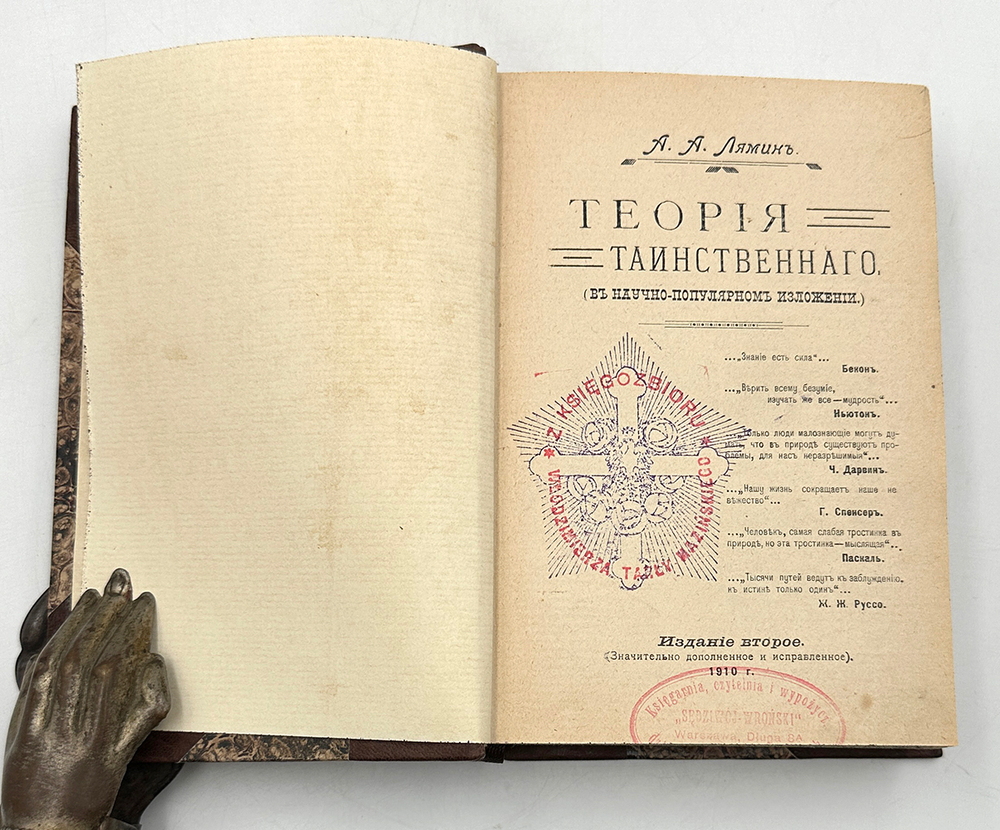 А. А. Ляминъ.
ТЕОРІЯ
ТАИНСТВЕННАГО.
(ВЪ НАУЧНО-ПОПУЛЯРНОМЪ ИЗЛОЖЕНІИ.)
..."Знаніе есть сила"...
Беконъ.
..."Вѣрить всему безуміе,
изучать же все — мудрость"...
Ньютонъ.
..."Только люди малознающіе могутъ ду-
мать, что въ природѣ существуютъ про-
блемы, для насъ неразрѣшимыя"...
Ч. Дарвинъ.
..."Нашу жизнь сокращаетъ наше не
вѣжество"...
Г. Спенсеръ.
..."Человѣкъ, самая слабая тростинка въ
природѣ, но эта тростинка — мыслящая"...
Паскаль.
..."Тысячи путей ведутъ къ заблужденію,
къ истинѣ только одинъ"...
Ж. Ж. Руссо.
Z KSIĘGOZBIORU
WŁODZIMIERZA TARŁY MAZIŃSKIEGO
Изданіе второе.
(Значительно дополненное и исправленное).
1910 г.
Księgarnia, czytelnia i wypożycz.
"SĘDZIWOJ-WROŃSKI"
Warszawa, Długa